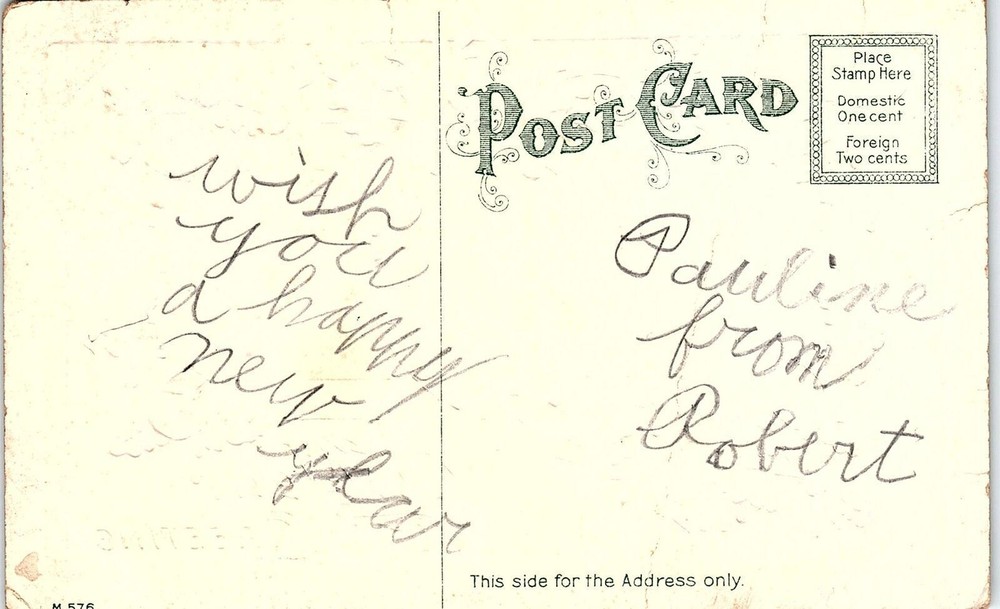 POST CARD
Place
Stamp Here
Domestic
One cent
Foreign
Two cents
wish
you
a happy
new
year
Pauline
from
Robert
This side for the Address only.
M 576